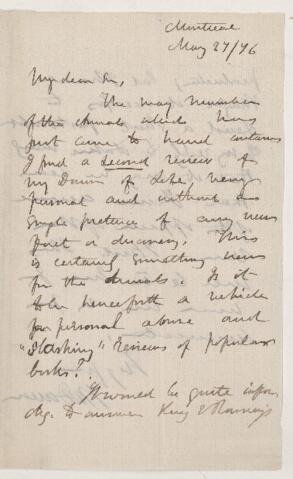 Montreal
May 27/76
My dear Sir,
The May number
of the Annals which has
just come to hand contains
I find a second review of
my Dawn of Life, very
personal and without a
single pretence of any new
fact or discovery. This
is certainly something new
for the Annals. Is it
to be henceforth a vehicle
for personal abuse and
"slashing" reviews of popular
books?
It would be quite
to answer King & Rowney's